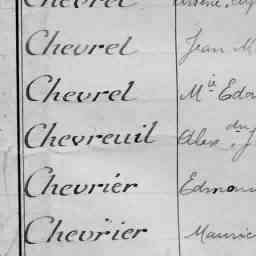 Chevrel
Chevrel Jean M
Chevrel Mie Edou
Chevreuil Alex du J
Chevrier Edmon
Chevrier Mauric